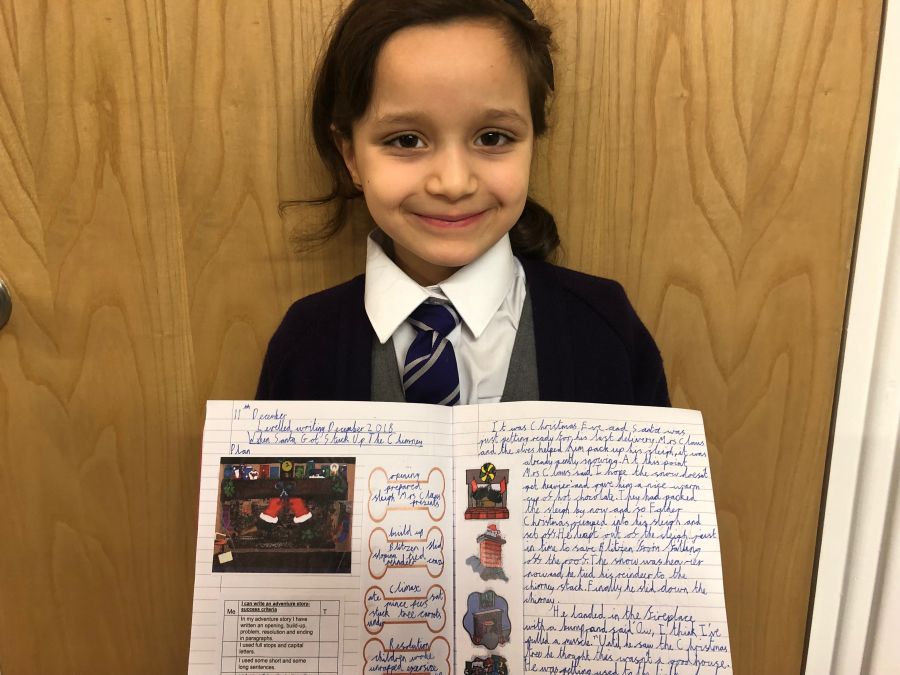 11th December
Levelled writing December 2018
When Santa Got Stuck Up The Chimney
Plan
opening
prepared
sleigh Mrs Claus
presents
build up
Blitzen sled
sloping tied
reindeer
Climax
ate sat
mince pies
stuck tree carrots
under
Resolution
children woke
unwrapped
I can write an adventure story:
success criteria
Me T
In my adventure story I have
written an opening, build-up,
problem, resolution and ending
in paragraphs.
I used full stops and capital
letters.
I used some short and some
long sentences.
It was Christmas Eve and Santa was
just getting ready for his last delivery. Mrs Claus
and the elves helped him pack up his sleigh, it was
already gently snowing. At this point
Mrs Claus said I hope the snow doesnt
get heavier and gave him a nice warm
cup of hot chocolate. They had packed
the sleigh by now and so Father
Christmas jumped into his sleigh and
set off. He leapt out of the sleigh just
in time to save Blitzen from falling
off the roof. The snow was heavier
now and he tied his reindeer to the
chimney stack. Finally he slid down the
chimney.
He landed in the fireplace
with a bump and said Ow, I think I've
pulled a muscle. "Until he saw the Christmas
tree he thought this wasn't a good house.
He was getting used to the